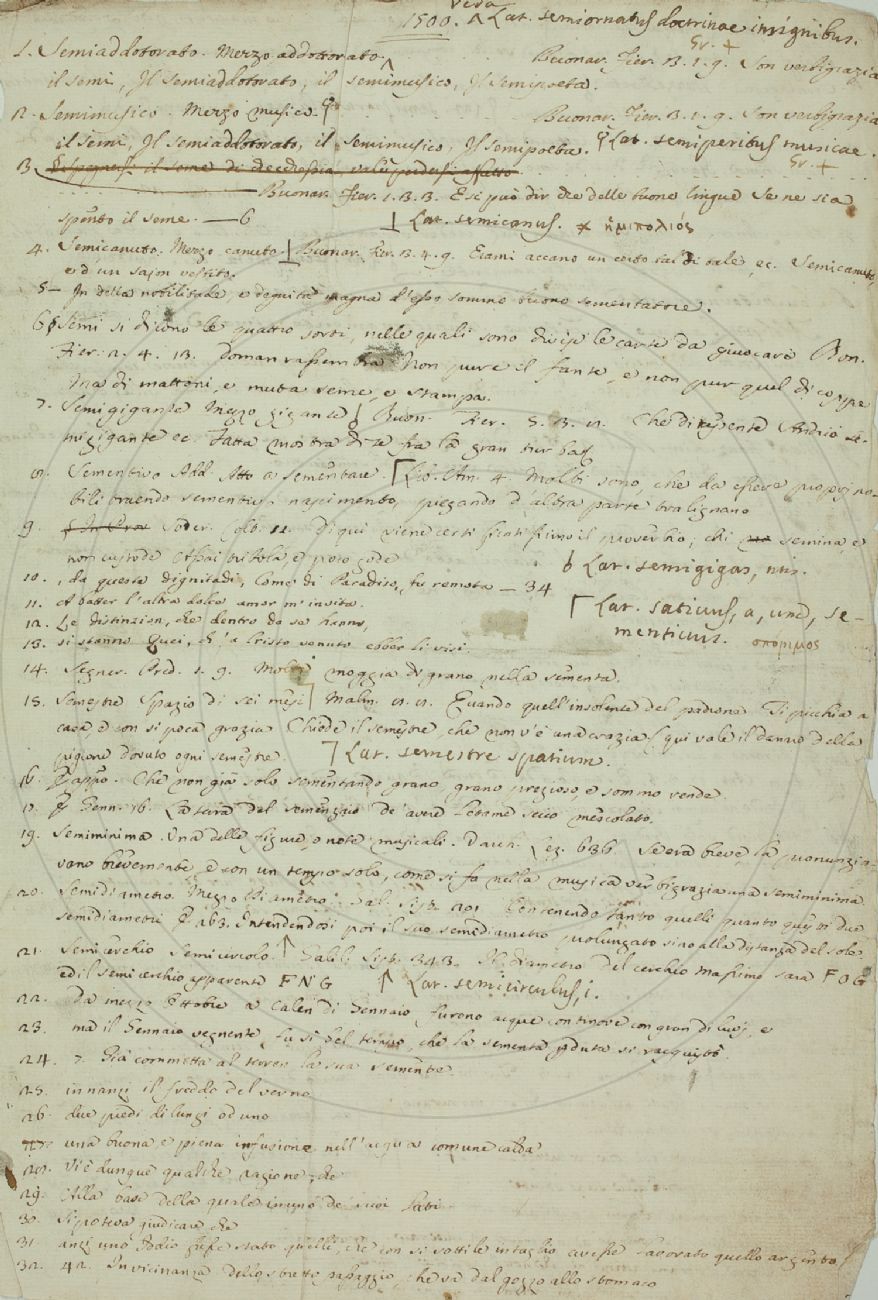 1500. Lat. semiornatus doctrinae insignibus.
1. Semiaddottorato. Mezzo addottorato. Buonar. Fier. 3. 1. 9. Son verbigrazia
il semi, Il semiaddottorato, il semimusico, Il semipoeta. Gr. +
2. Semimusico. Mezzo musico. Buonar. Fier. 3. 1. 9. Son verbigrazia
il semi, Il semiaddottorato, il semimusico, Il semipoeta. Lat. semiperitus musicae.
Gr. +
3. Spegnersi il seme di checchessia, vale perdersi affatto
Buonar. Fier. 1. 3. 3. E si può dir che delle buone lingue Se ne sia
spento il seme. — 6 Lat. semicanus. ἡμιπολιός
4. Semicanuto. Mezzo canuto. Buonar. Fier. 3. 4. 9. un certo tal di tale, ec. Semicanuto,
e d'un sajon vestito.
5 — In della nobilitade, e degnità magna d'esso sommo buono sementatore.
6 Semi si dicono le quattro sorti, nelle quali sono divise le carte da giuocare Bon.
Fier. 2. 4. 13. Doman rassembra Non pure il fante, e non pur quel di coppe
Ma di mattoni, e muta seme, e stampa.
7. Semigigante Mezzo gigante Buon. Fier. 5. 3. Che di repente Se-
migigante ec. Fatta mostra di se fra la gran turba
8. Sementivo Add. Atto a sementare. Molti sono, che da essere proprj no-
bili traendo sementivi nascimento, piegando d'altra parte tralignano
9. Soder. Colt. 11. Di qui viene certissimo il proverbio; chi semina, e
non custode Assai e poco gode
Lat. semigigas, ntis.
10. , da questa dignitadi, Come di Paradiso, fu remota — 34
11. A batter l'altra dolce amor m'invita.
Lat. sativus, a, um, se-
menticius. σπόριμος
12. Le distinzion, che dentro da se hanno,
13. si stanno Quei, ch'a Cristo venuto ebber li visi.
14. Segner. Pred. 1. 9. Molte moggia di grano nella sementa.
15. Semestre Spazio di sei mesi Malm. Quando quell'insolente del padrone Ti picchia a
casa, e con sì poca grazia Chiede il semestre, che non v'è una crazia (qui vale il danaro della
pigione dovuto ogni semestre. Lat. semestre spatium.
16. Che non già solo sementando grano, grano prezioso, e sommo rende.
17. Genn. 16. La terra del semenzaio de' avere letame secco mescolato.
19. Semiminima. Una delle figure, o note musicali. Varch. Lez. 636 Se era breve la pronunzia-
vano brevemente, e con un tempo solo, come si fa nella musica verbigrazia una semiminima
20. Semidiametro. Mezzo diametro. Gal. Sist. 201 Contenendo tanto quelli quanto questi due
semidiametri 263. Intendendosi poi il suo semidiametro prolungato sino alla distanza del sole
21. Semicerchio Semicircolo. Galil. Sist. 343. Il diametro del cerchio massimo sarà F O G
ed il semicerchio apparente F N G Lat. semicirculus, i.
22. Da mezzo Ottobre a Calen di Gennaio furono acque continove con gran diluvj, e
23. ma il Gennaio vegnente fu sì bel tempo, che la sementa perduta si racquistò.
24. 7. Già committa al terren la sua semente
25. innanzi il freddo del verno
26. due piedi di lungi ad uno
27. una buona, e piena infusione nell'acqua comune calda
28. V'è dunque qualche ragione, che
29. Alla base della quale in uno de' suoi lati
30. Si poteva giudicare che
31. anzi uno Iddio fusse stato quelli, che con sì sottile intaglio avesse lavorato quello argento
32. 42. In vicinanza dello stretto passaggio, che va dal gozzo allo stomaco